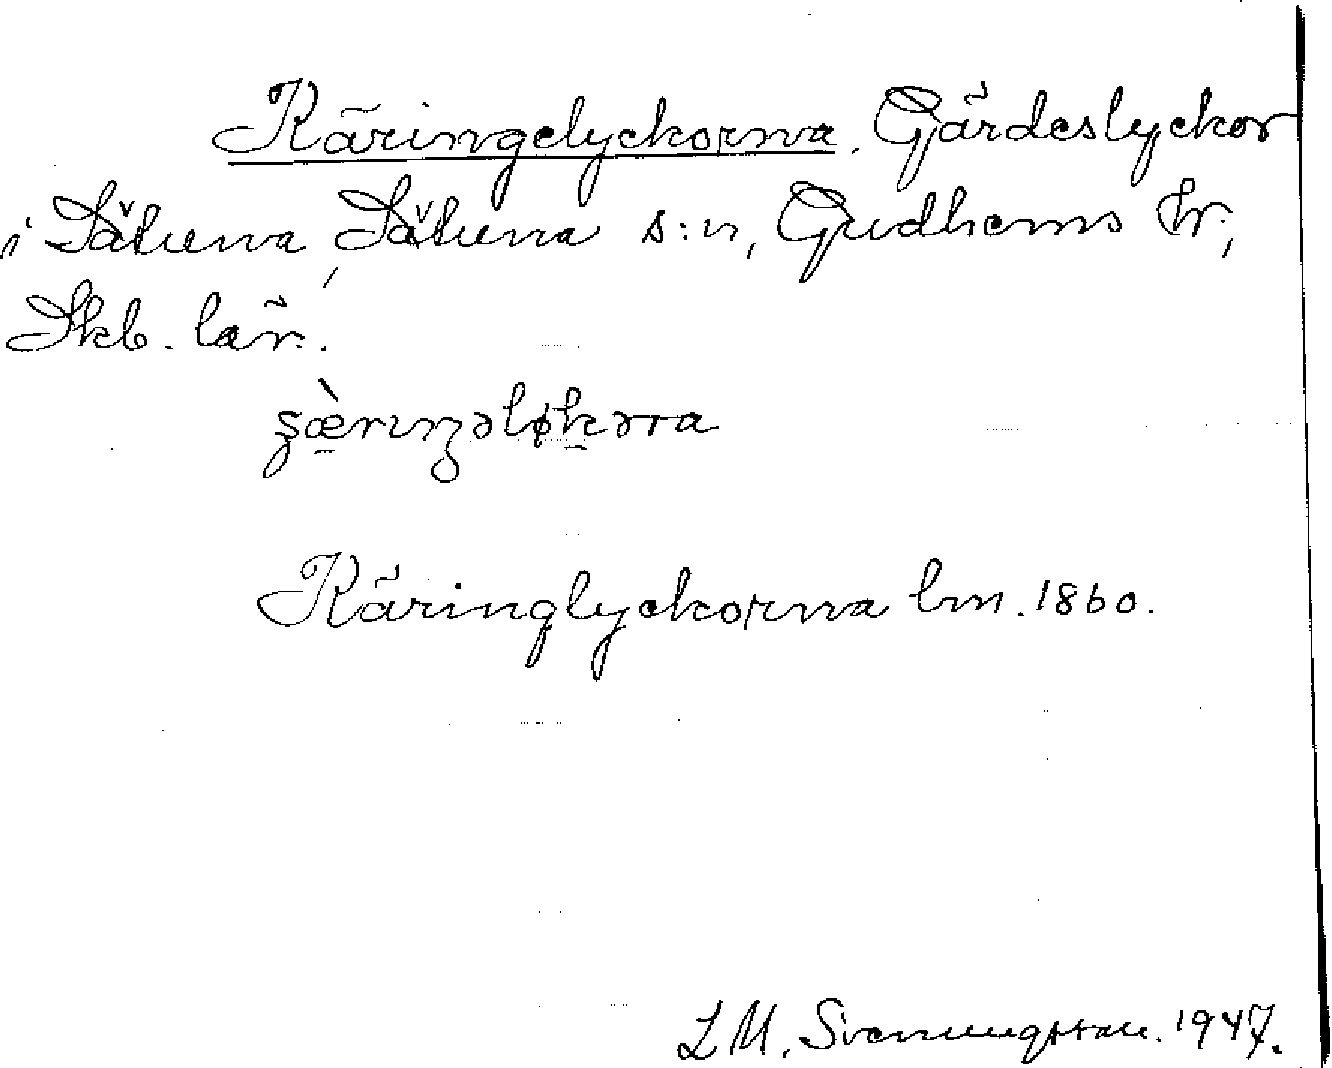 Käringelyckorna. Gärdeslyckor
i Sätuna, Sätuna s:n, Gudhems hr;
Skb. län.
Käringlyckorna lm. 1860.
L M. Svenungsson. 1947.